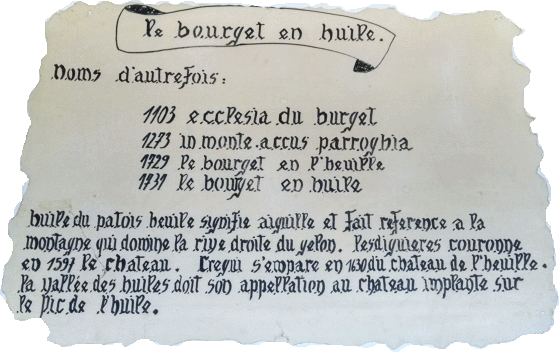 le bourget en huile.
Noms d'autrefois:
1103 ecclesia du burget
1273 in monte accus parroghia
1729 le bourget en l'heuille
1731 le bourget en huile
huile du patois heuile signifie aiguille et fait reference a la
montagne qui domine la rive droite du gelon. Lesdiguieres couronne
en 1597 le chateau. Crequi s'empare en 1630 du chateau de l'heuille.
la vallée des huiles doit son appellation au chateau implante sur
le pic de l'huile.